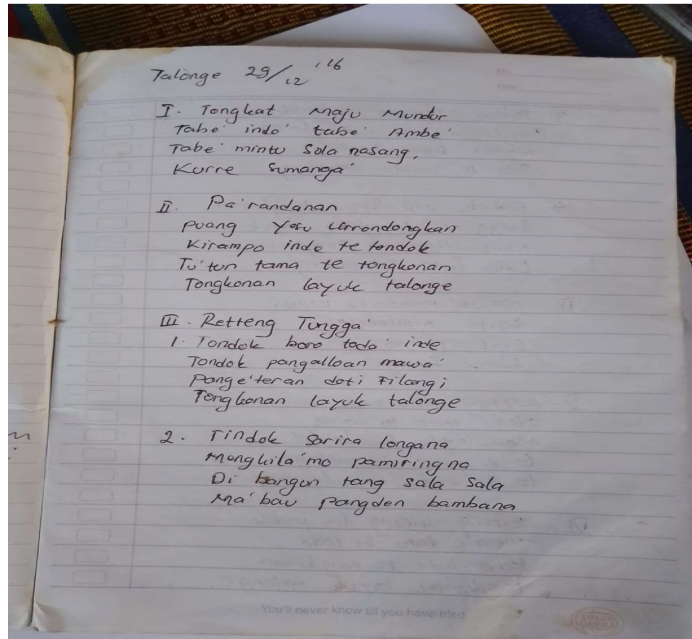 Talonge 29/12 '16
I. Tongkat Maju Mundur
Tabe' indo' tabe' Ambe'
Tabe' mintu Sola nasang,
Kurre Sumanga'
II. Pa'randanan
Puang Yesu Urrondongkan
Kirampo inde te tondok
Tu'tun tama te tongkonan
Tongkonan layuk talonge
III. Retteng Tungga'
1. Tondok boro todo' inde
Tondok pangalloan mawa'
Pange'teran doti Tilangi
Tongkonan layuk talonge
2. Tindok Sarira longana
Mengkila'mo pamiringna
Di bangun tang sala sala
Ma'bau pangden bambana
You'll never know till you have tried